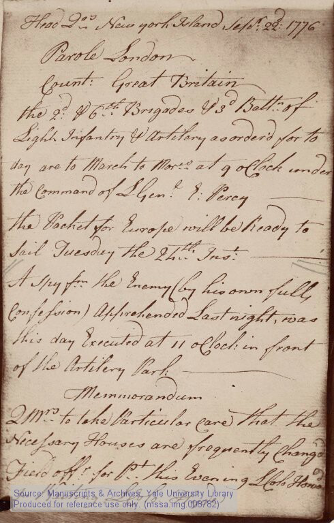 Head Qrs New york Island Sepr. 22d. 1776
Parole London
Count: Great Britain
the 2d. & 6th Brigades & 3d Battn. of
Light Infantry & Artilery as orderd for to
day are to March to Morw at 9 oClock under
the Command of L Genl. E. Percy
the Packet for Europe will be Ready to
Sail Tuesday the 24th Inst.
A Spy fm the Enemy (by his own full
Confession) Apprehended Last night, was
this day Executed at 11 oClock in front
of the Artilery Park
Memorandum
Q Mrs to take Particular care that the
Necessary Houses are frequently Changd
Field offr. for Pt. this Evening L Col
Source: Manuscripts & Archives, Yale University Library
Produced for reference use only. (mssa.img.005782)